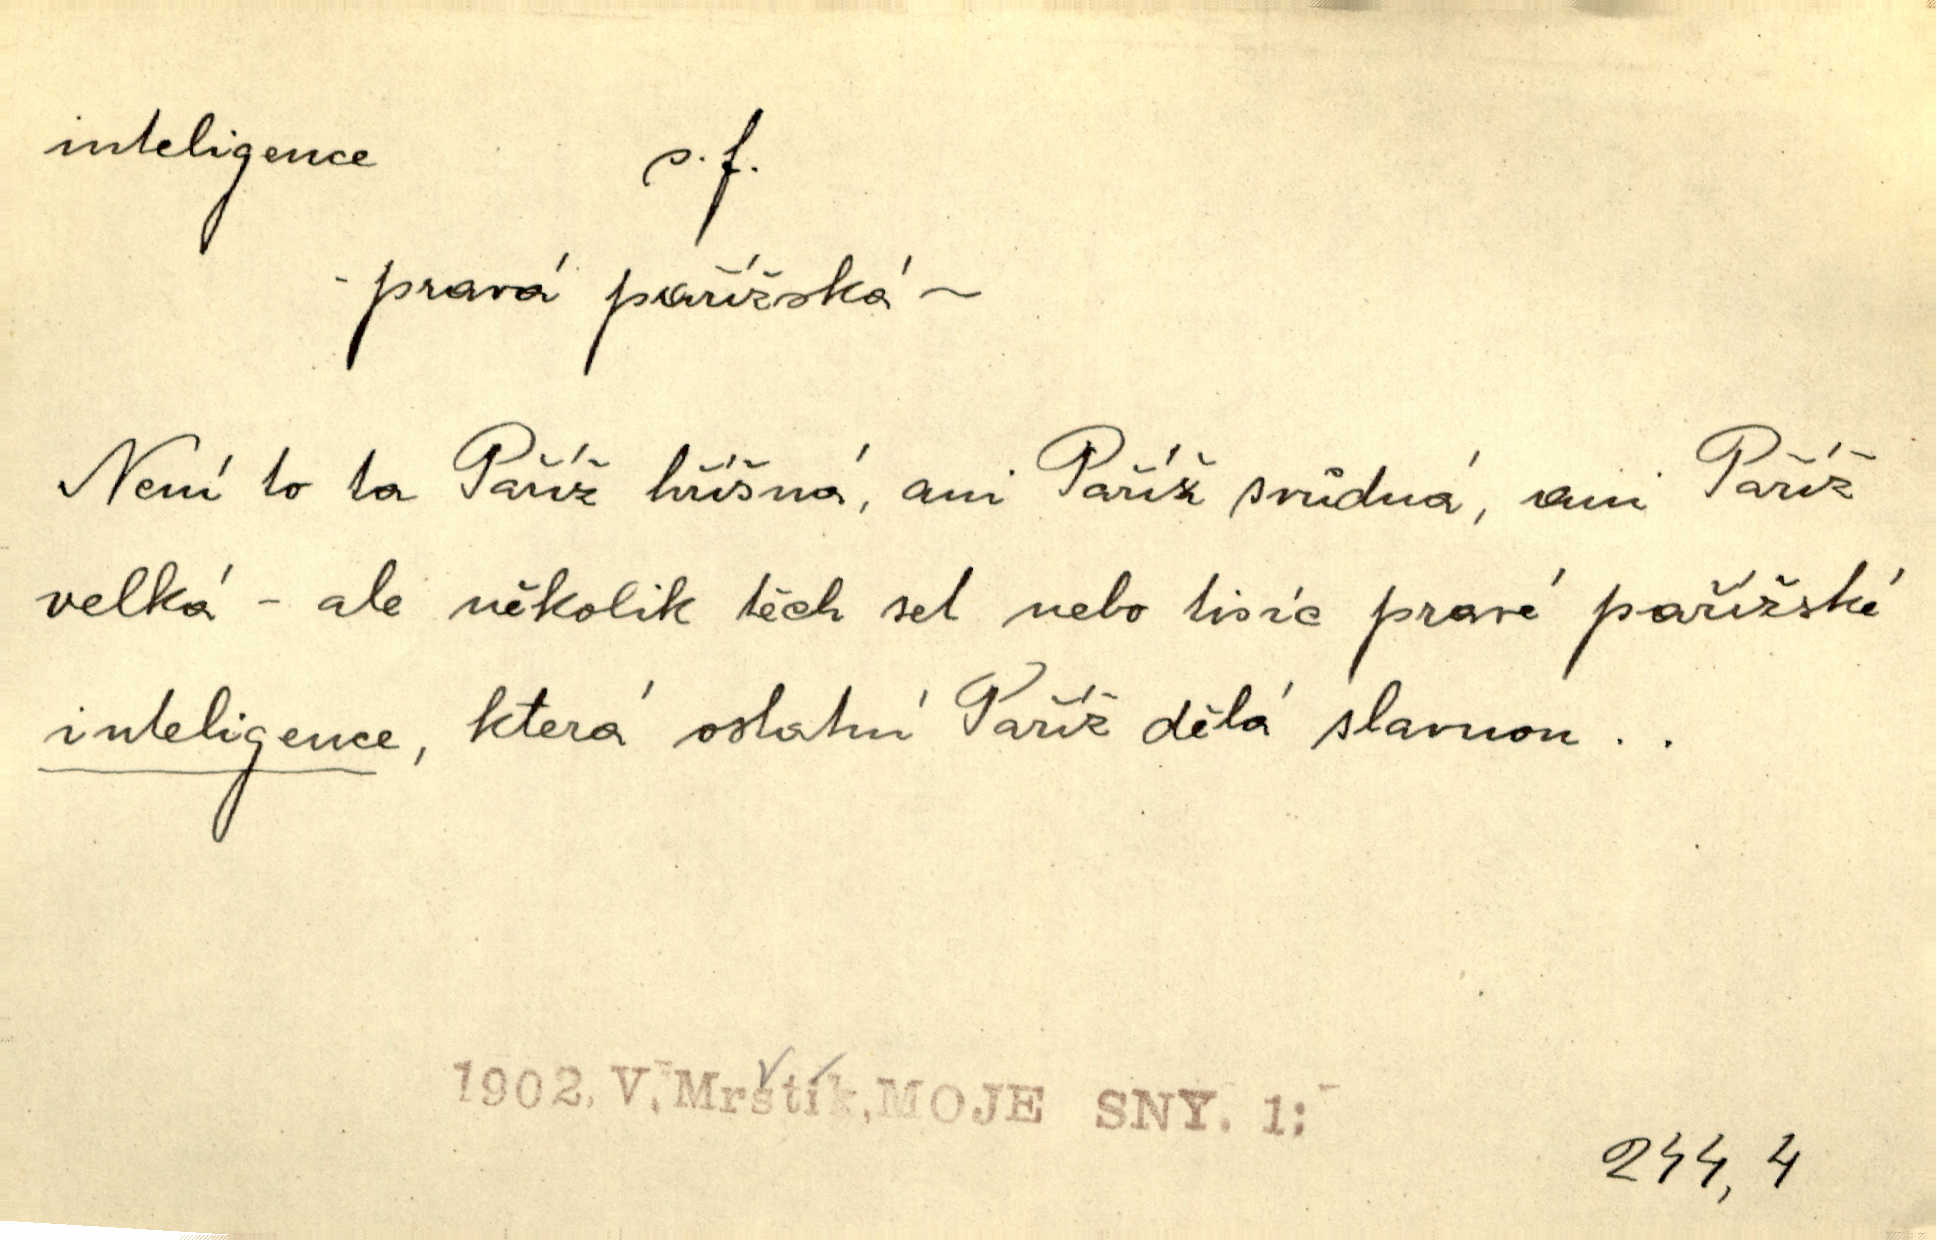 inteligence s.f.
- pravá pařížská ~
Není to ta Paříž hříšná, ani Paříž svůdná, ani Paříž
velká - ale několik těch set nebo tisíc pravé pařížské
inteligence, která ostatní Paříž dělá slavnou . .
1902. V. Mrštík, MOJE SNY. 1:
244, 4